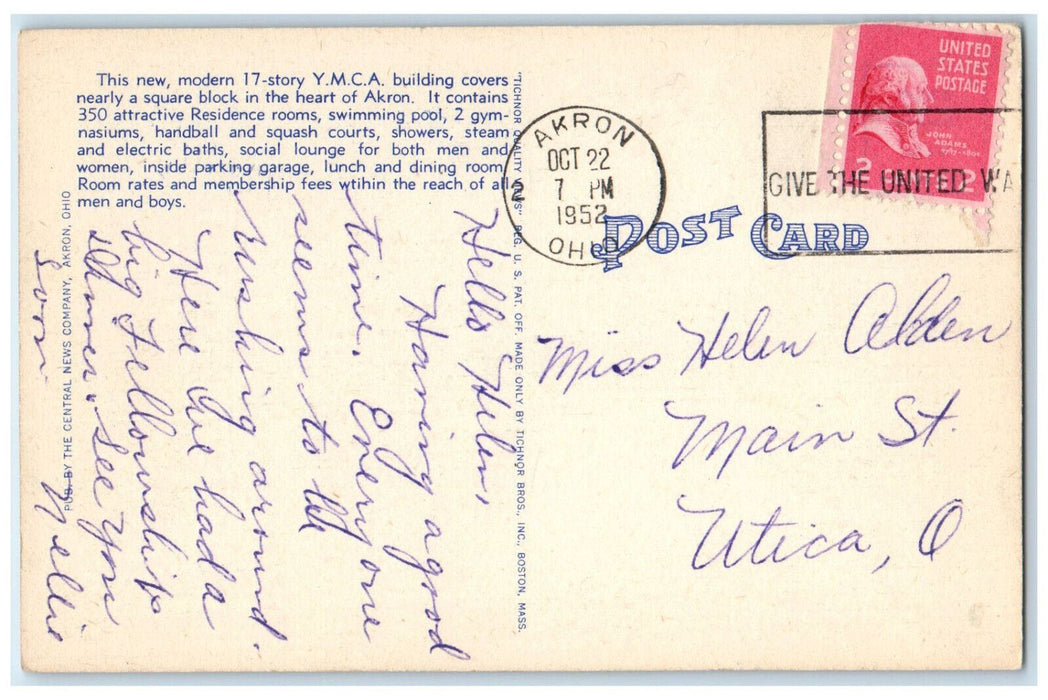 This new, modern 17-story Y.M.C.A. building covers
nearly a square block in the heart of Akron. It contains
350 attractive Residence rooms, swimming pool, 2 gym-
nasiums, handball and squash courts, showers, steam
and electric baths, social lounge for both men and
women, inside parking garage, lunch and dining room.
Room rates and membership fees wtihin the reach of all
men and boys.
PUB. BY THE CENTRAL NEWS COMPANY, AKRON, OHIO
"TICHNOR QUALITY VIEWS" REG. U. S. PAT. OFF. MADE ONLY BY TICHNOR BROS., INC., BOSTON, MASS.
Hello Helen,
Having a good
time. Everyone
seems to be
rushing around.
Here we had a
big Fellowship
dinner. See you
Soon.
Nellie
AKRON
OCT 22
7 PM
1952
OHIO
2
GIVE THE UNITED WA
UNITED
STATES
POSTAGE
JOHN
ADAMS
1797-1801
2 2
POST CARD
Miss Helen Alden
Main St.
Utica, O